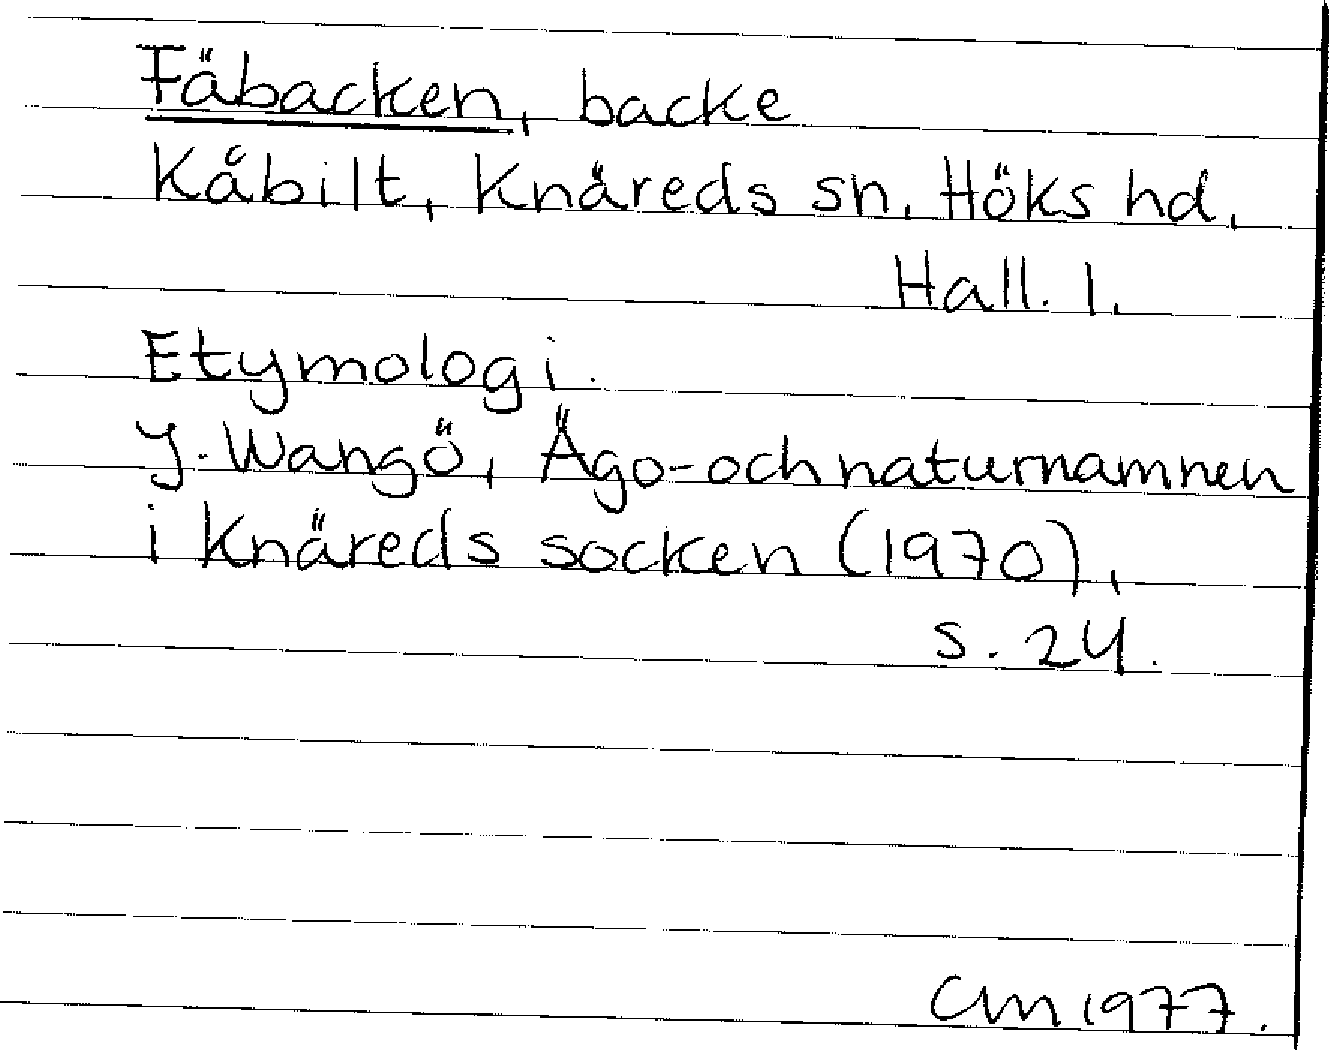 Fäbacken, backe
Kåbilt, Knäreds sn, Höks hd,
Hall. l.
Etymologi.
J. Wangö, Ägo- och naturnamnen
i Knäreds socken (1970),
s. 24.
CM 1977.